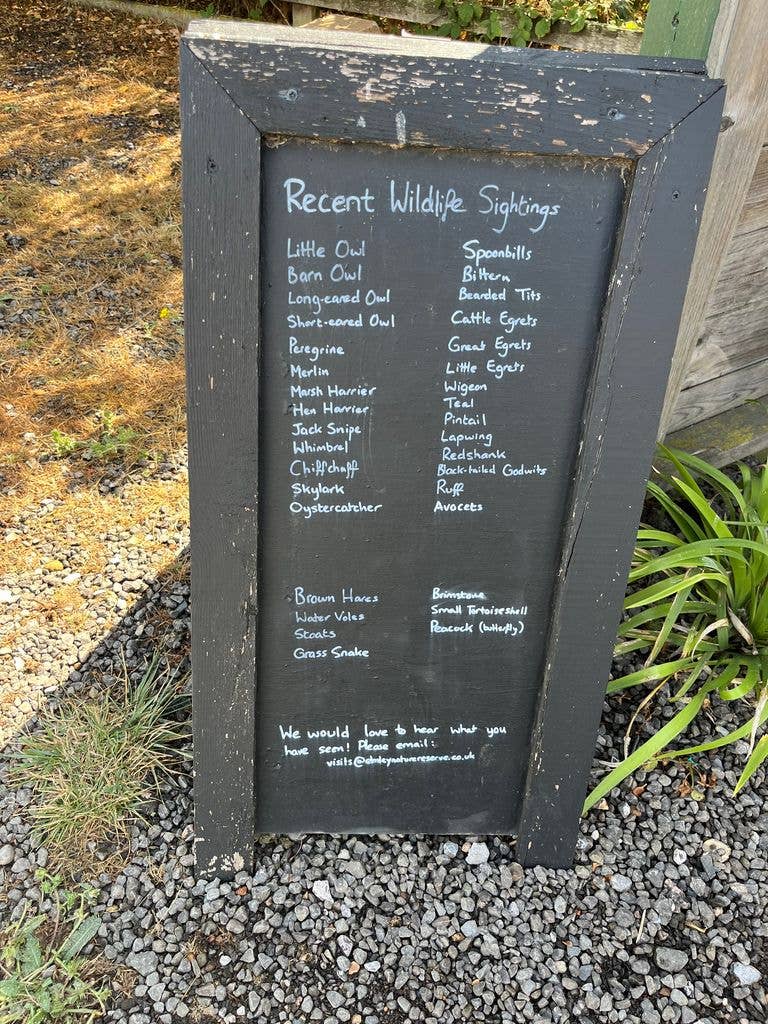 Recent Wildlife Sightings
Little Owl
Barn Owl
Long-eared Owl
Short-eared Owl
Peregrine
Merlin
Marsh Harrier
Hen Harrier
Jack Snipe
Whimbrel
Chiffchaff
Skylark
Oystercatcher
Spoonbills
Bittern
Bearded Tits
Cattle Egrets
Great Egrets
Little Egrets
Wigeon
Teal
Pintail
Lapwing
Redshank
Black-tailed Godwits
Ruff
Avocets
Brown Hares
Water Voles
Stoats
Grass Snake
Brimstone
Small Tortoiseshell
Peacock (butterfly)
We would love to hear what you
have seen! Please email:
visits@elmleynaturereserve.co.uk